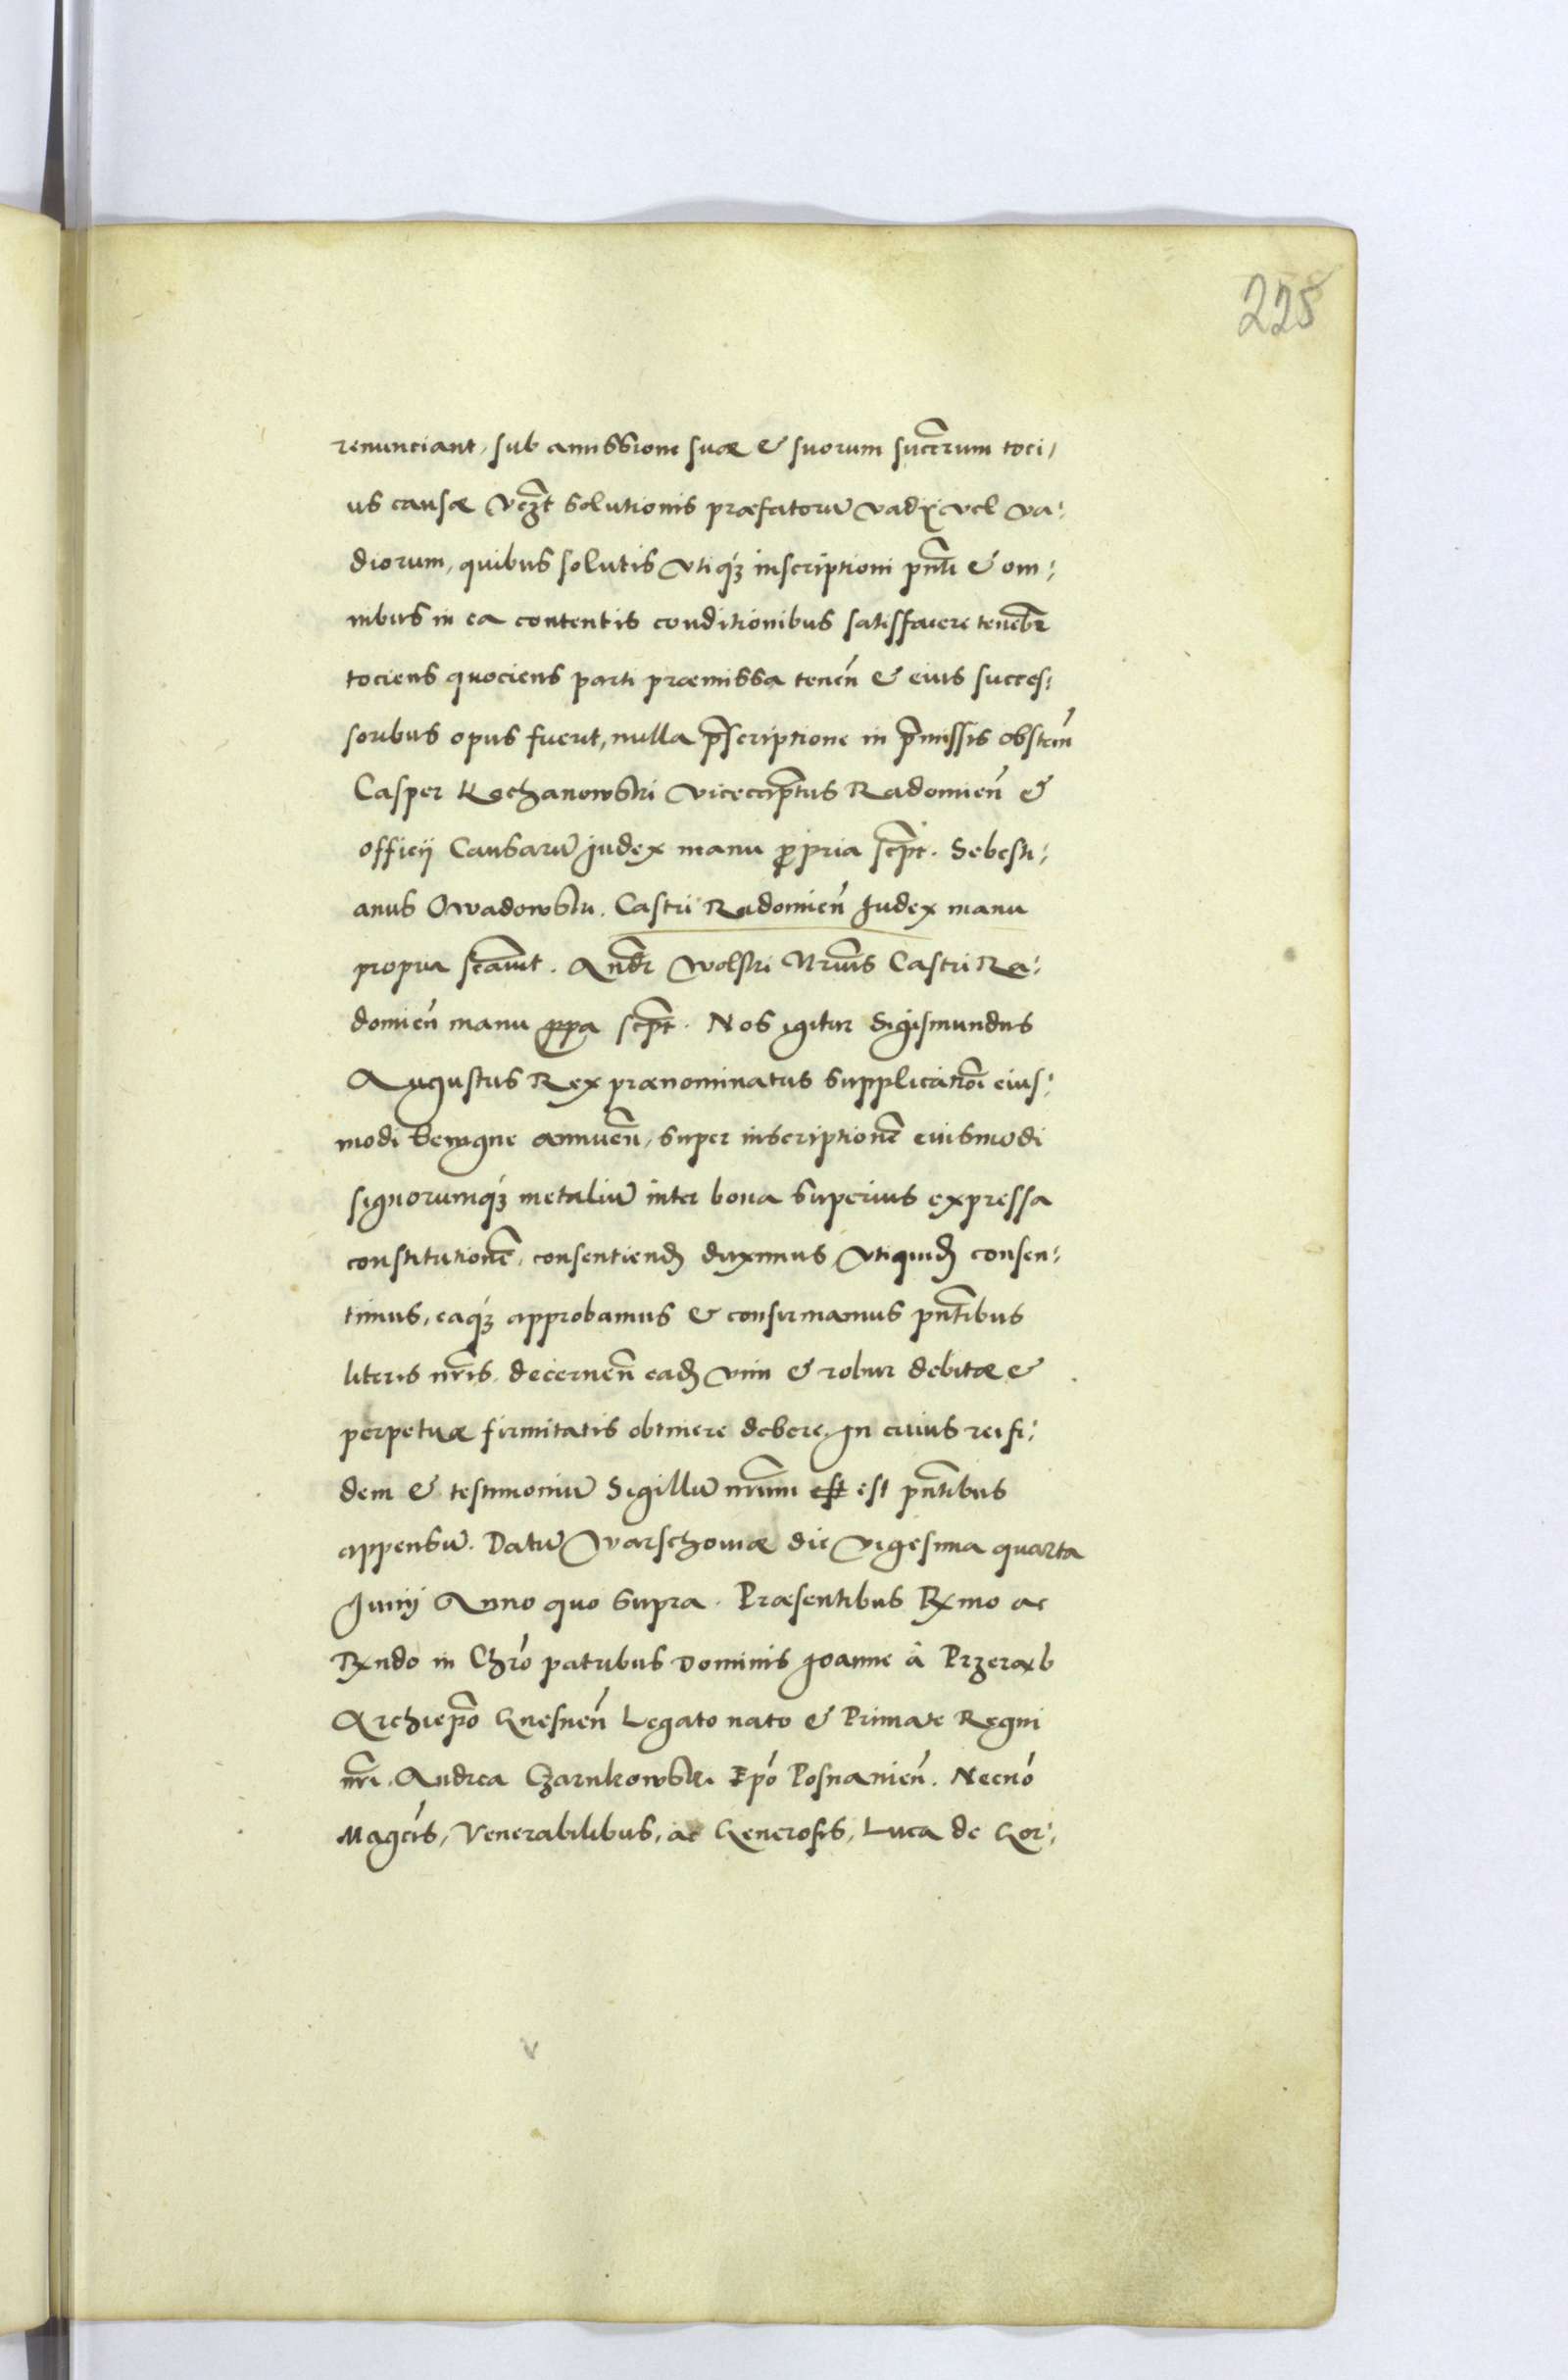 228
renunciant, sub amissione suæ & suorum succrum toci,
us causæ vczt solutionis præfatorū vadij vel va:
diorum, quibus solutis vtiqʒ inscriptioni pnti & om:
nibus in ea contentis conditionibus satisfacere tenebr
tociens quociens parti præmissa tenen̄ & eius succes:
soribus opus fuerit, nulla p̄scriptione in p̄missis obsten̄
Casper Kochanowski viceccaptus Radomien̄ &
officij Causarū Judex manu propria scpt. Sebesti:
anus Owadowski. Castri Radomien̄ Judex manu
propria scauit. Andr Wolski Nrius Castri Ra:
domien̄ manu ppa scpt. Nos igitur Sigismundus
Augustus Rex prænominatus supplicatnoi eius:
modi benigne annuen̄, super inscriptionē eiusmodi
signorumqʒ metaliū inter bona superius expressa
constitutionē, consentiend duximus vtiquid consen:
timus, eaqʒ approbamus & confirmamus pntibus
literis nris. decernen̄ ead vim & robur debitæ &
perpetuæ firmitatis obtinere debere. In cuius rei fi:
dem & testimoniū Sigillū nrum est est pntibus
appensū. Datū Warschouiæ die vigesima quarta
Junij Anno quo supra. Præsentibus Rxmo ac
Rxndo in Chro patribus Dominis Joanne â Przeramb
Archiepo Gnesnen̄ Legato nato & Primate Regni
nri. Andrea Czarnkowski Epo Posnanien̄. Necnō
Magcis, Venerabilibus, ac Generosis, Luca de Gor: